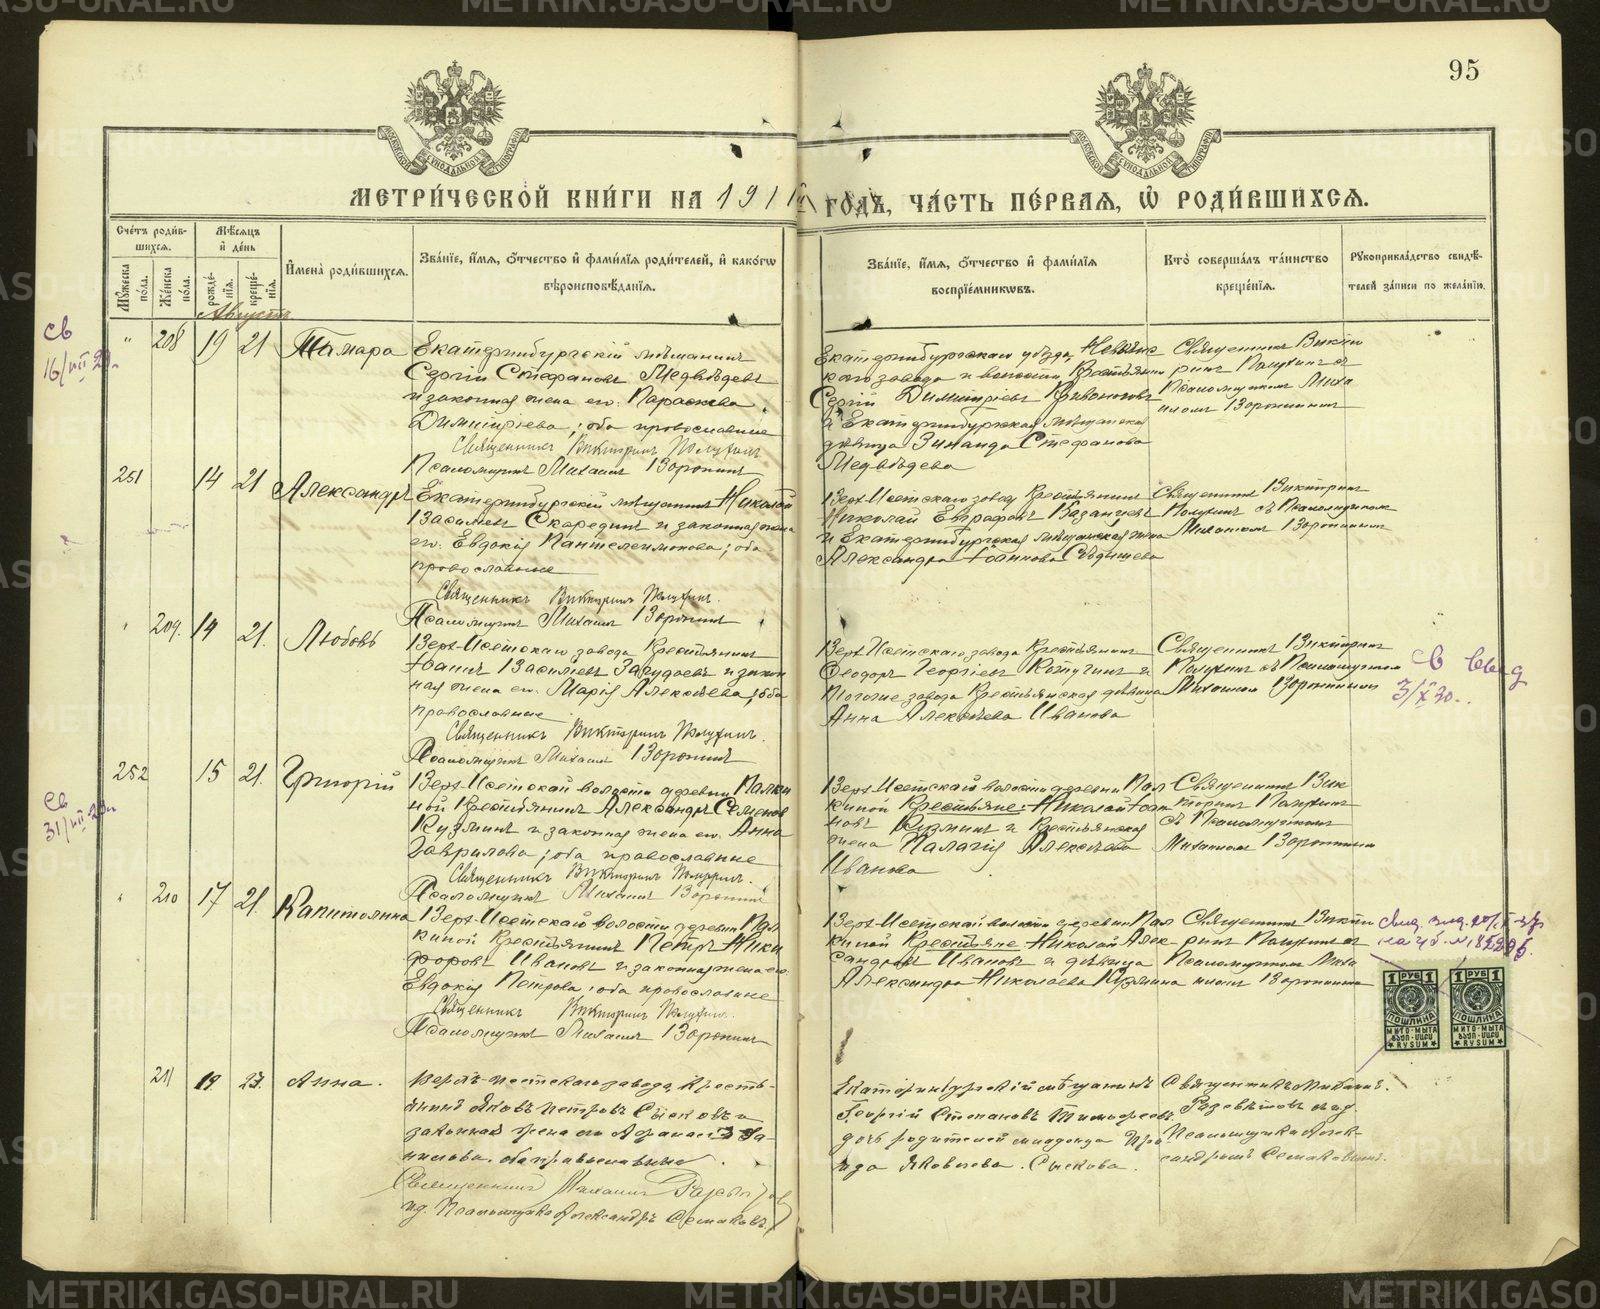 95
МЕТРИ́ЧЕСКОЙ КНИ́ГИ НА 1911й ГОДЪ, ЧА́СТЬ ПЕ́РВАЯ, Ѡ҆ РОДИ́ВШИХСЯ.
Сче́тъ роди́в-
шихся.
Мѣ́сяцъ
и҆ де́нь
Му́жеска по́ла.
Же́нска по́ла.
рожде́-
нїя.
креще́-
нїя.
И҆мена̀ роди́вшихся.
Зва́нїе, и҆́мя, ѻ҆́тчество и҆ фами́лїя роди́телей, и҆ како́гѡ
вѣроисповѣ́данїя.
Зва́нїе, и҆́мя, ѻ҆́тчество и҆ фами́лїя
воспрїе́мникѡвъ.
Кто̀ соверша́лъ та́инство
креще́нїя.
Рꙋкоприкла́дство свидѣ́-
телей за́писи по жела́нїю.
Августъ
208 19 21 Тамара
Екатеринбургскій мѣщанинъ
Сергій Стефановъ Медвѣдевъ
и законная жена его Параскева
Димитріева; оба православные
Священникъ Викторинъ Полухинъ
Псаломщикъ Михаилъ Воронинъ
Екатеринбургскаго уѣзда, Невьянс
каго завода и волости Крестьянинъ
Сергій Димитріевъ Кривоноговъ
и Екатеринбургская мѣщанская
дѣвица Зинаида Стефанова
Медвѣдева
Священникъ Викто
ринъ Полухинъ съ
Псаломщикомъ Миха
иломъ Воронинымъ
св
16/VII 29.
251 14 21 Александръ
Екатеринбургскій мѣщанинъ Николай
Васильевъ Скарединъ и законная жена
его Евдокія Пантелеимонова; оба
православные
Священникъ Викторинъ Полухинъ.
Псаломщикъ Михаилъ Воронинъ
Верх-Исетскаго завода Крестьянинъ
Николай Евграфовъ Казанцевъ
и Екатеринбургская мѣщанская жена
Александра Іоаннова Сѣдышева
Священникъ Викторинъ
Полухинъ съ Псаломщикомъ
Михаиломъ Воронинымъ
209. 14 21. Любовь
Верх-Исетскаго завода Крестьянинъ
Іоаннъ Васильевъ Загудаевъ и закон
ная жена его Марія Алексѣева; оба
православные
Священникъ Викторинъ Полухинъ.
Псаломщикъ Михаилъ Воронинъ
Верх-Исетскаго завода Крестьянинъ
Феодоръ Георгіевъ Котугинъ и
того же завода Крестьянская дѣвица
Анна Алексѣева Иванова
Священникъ Викторинъ
Полухинъ съ Псаломщикомъ
Михаиломъ Воронинымъ
св выд
3/X 30.
252 15 21. Григорій
Верх-Исетской волости деревни Палки
ной Крестьянинъ Александръ Семеновъ
Кузминъ и законная жена его Анна
Гаврилова; оба православные
Священникъ Викторинъ Полухинъ.
Псаломщикъ Михаилъ Воронинъ
Верх-Исетской волости деревни Пал
киной Крестьяне: Николай Іоан
новъ Кузминъ и Крестьянская
жена Палагія Алексѣева
Иванова
Священникъ Вик
торинъ Полухинъ
съ Псаломщикомъ
Михаиломъ Воронинымъ
св
31/VII 29г
210 17 21. Капитолина
Верх-Исетской волости деревни Пал
киной Крестьянинъ Петръ Ники
форовъ Ивановъ и законная жена его
Евдокія Петрова; оба православные
Священникъ Викторинъ Полухинъ.
Псаломщикъ Михаилъ Воронинъ
Верх-Исетской волости деревни Пал
киной Крестьяне Николай Алек-
сандровъ Ивановъ и дѣвица
Александра Николаева Кузмина
Священникъ Викто
ринъ Полухинъ съ
Псаломщикомъ Миха
иломъ Воронинымъ
1 РУБ 1
ПОШЛИНА
МИТО-МЫТА
RYSUM
1 РУБ 1
ПОШЛИНА
МИТО-МЫТА
RYSUM
211 19 27. Анна.
Верхъ-Исетскаго завода, кресть-
янинъ Яковъ Петровъ Сысковъ и
законная жена его Афанасія Да-
нилова. оба православные.
Священникъ Михаилъ
и.д. Псаломщика Александръ Семаковъ
Екатеринбургскій мѣщанинъ
Георгій Степановъ Тимофеевъ
дочь родителей младенца Ира-
ида Яковлева. Сыскова.
Священникъ Михаилъ
и.д.
Псаломщика Алек-
сандромъ Семаковымъ.
METRIKI.GASO-URAL.RU